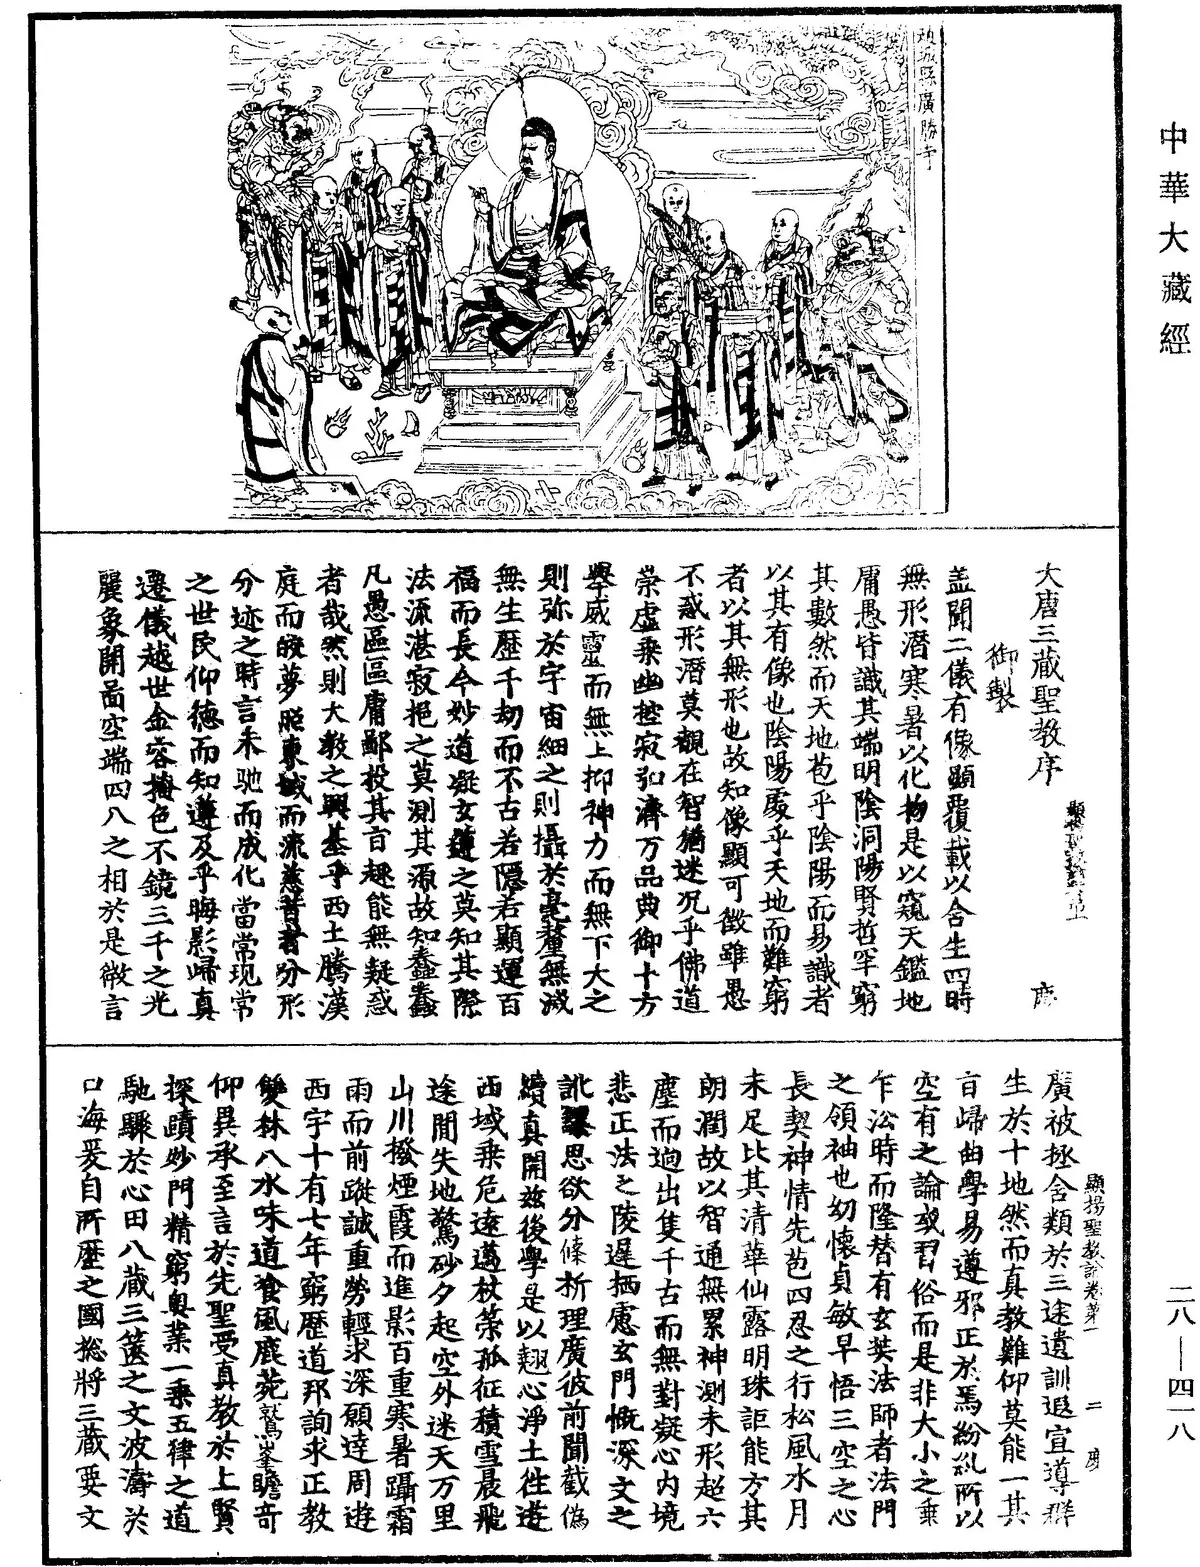 中華大藏經
趙城縣廣勝寺
大唐三藏聖教序
顯揚聖教論卷第一
度
御製
蓋聞二儀有像顯覆載以含生四時
無形潛寒暑以化物是以窺天鑑地
庸愚皆識其端明陰洞陽賢哲罕窮
其數然而天地苞乎陰陽而易識者
以其有像也陰陽處乎天地而難窮
者以其無形也故知像顯可徵雖愚
不惑形潛莫覩在智猶迷況乎佛道
崇虛乘幽控寂弘濟万品典御十方
舉威靈而無上抑神力而無下大之
則弥於宇宙細之則攝於毫釐無滅
無生歷千劫而不古若隱若顯運百
福而長今妙道凝玄遵之莫知其際
法流湛寂挹之莫測其源故知蠢蠢
凡愚區區庸鄙投其旨趣能無疑惑
者哉然則大教之興基乎西土騰漢
庭而皎夢照東域而流慈昔者分形
分迹之時言未馳而成化當常現常
之世民仰德而知遵及乎晦影歸真
遷儀越世金容掩色不鏡三千之光
麗象開啚空端四八之相於是微言
顯揚聖教論卷第一　二　度
廣被拯含類於三途遺訓遐宣導群
生於十地然而真教難仰莫能一其
旨歸曲學易遵邪正於焉紛糺所以
空有之論或習俗而是非大小之乘
乍沿時而隆替有玄奘法師者法門
之領袖也幼懷貞敏早悟三空之心
長契神情先苞四忍之行松風水月
未足比其清華仙露明珠詎能方其
朗潤故以智通無累神測未形超六
塵而迥出隻千古而無對凝心內境
悲正法之陵遲栖慮玄門慨深文之
訛謬思欲分條析理廣彼前聞截偽
續真開茲後學是以翹心淨土往遊
西域乘危遠邁杖策孤征積雪晨飛
途閒失地驚砂夕起空外迷天万里
山川撥煙霞而進影百重寒暑躡霜
雨而前蹤誠重勞輕求深願達周遊
西宇十有七年窮歷道邦詢求正教
雙林八水味道飡風鹿菀鷲峯瞻奇
仰異承至言於先聖受真教於上賢
探賾妙門精窮奧業一乘五律之道
馳驟於心田八藏三篋之文波濤於
口海爰自所歷之國惣將三藏要文
二八—四一八